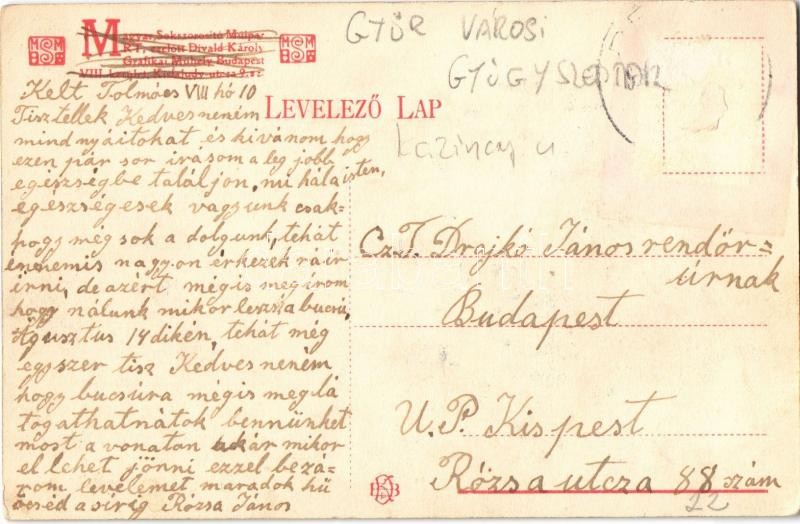 Magyar Sokszorosító Műipar
RT. ezelőtt Divald Károly
Grafikai Műhely Budapest
VIII. kerület,
GYŐR VÁROSI
GYÓGYSZER
1912
Kazinczy u
LEVELEZŐ LAP
Kelt Tolmács VIII hó 10
Tisztellek Kedves neném
mindnyáitokat és kivánom hogy
ezen pár sor irásom a leg jobb
egészségbe találjon, mi hála isten,
egészségesek vagyunk csak-
hogy még sok a dolgunk, tehát
én nemis nagyon érkezek rá ir
irni, de azért mégis megirom
hogy nálunk mikor lessz a bucsú,
Águsztus 14 dikén, tehát még
egyszer tisz Kedves neném
hogy bucsúra mégis meglá
togathatnátok bennünket
most a vonatan akár mikor
el lehet jönni ezzel beza-
rom levelemet maradok hű
öcséd a sirig Rózsa János
Cz. T. Drajkó János rendőr=
úrnak
Budapest
U. P. Kispest
Rózsa utcza 88 szám
22